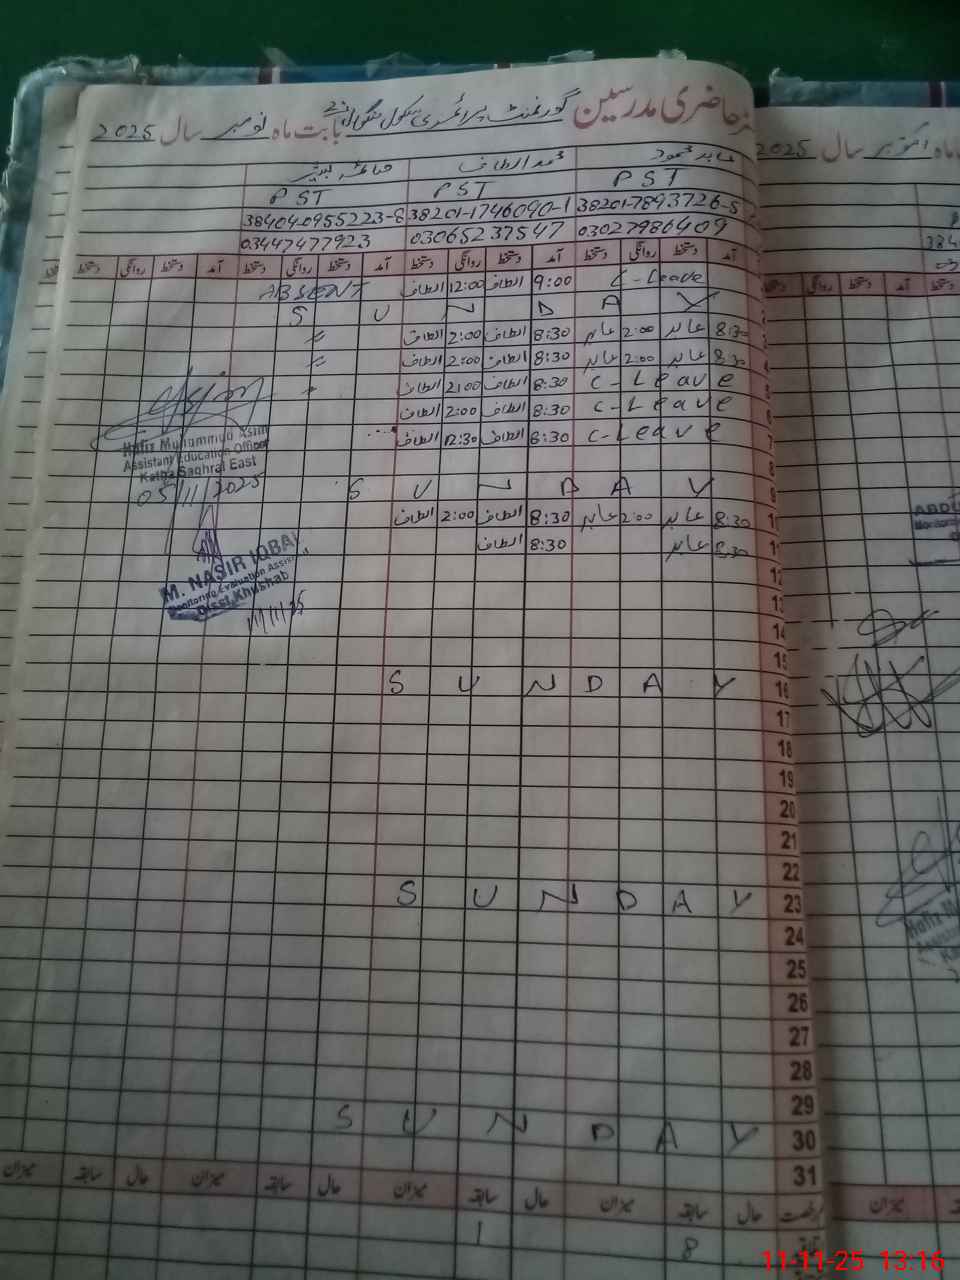 حاضری مدرسین گورنمنٹ پرائمری سکول بابت ماہ نومبر سال 2025
ماہ اکتوبر سال 2025
عابد محمود محمد الطاف
PST PST PST
38201-7893726-5 38201-1746090-1 384040955223-8
03027986409 03065237547 03447477923
آمد دستخط روانگی دستخط آمد دستخط روانگی دستخط آمد دستخط روانگی دستخط آمد دستخط روانگی دستخط
C-Leave 9:00 الطاف 12:00 الطاف ABSENT
SUNDAY
8:30 عابد 2:00 عابد 8:30 الطاف 2:00 الطاف 〃
8:30 عابد 2:00 عابد 8:30 الطاف 2:00 الطاف 〃
5 C-Leave 8:30 الطاف 2:00 الطاف 〃
6 C-Leave 8:30 الطاف 2:00 الطاف
7 C-Leave 8:30 الطاف 12:30 الطاف
8
9 SUNDAY
10 8:30 عابد 2:00 عابد 8:30 الطاف 2:00 الطاف
11 8:30 عابد 8:30 الطاف
12
13
14
15
16 SUNDAY
17
18
19
20
21
22
23 SUNDAY
24
25
26
27
28
29
30 SUNDAY
31
Hafiz Muhammad Asim
Assistant Education Officer
Katha Saghral East
05/11/2025
M. NASIR IQBAL
Monitoring Evaluation Assistant
Disst. Khushab
11/11/25
رخصت حال سابقہ میزان حال سابقہ میزان حال سابقہ میزان حال سابقہ میزان
8 1
11-11-25 13:16